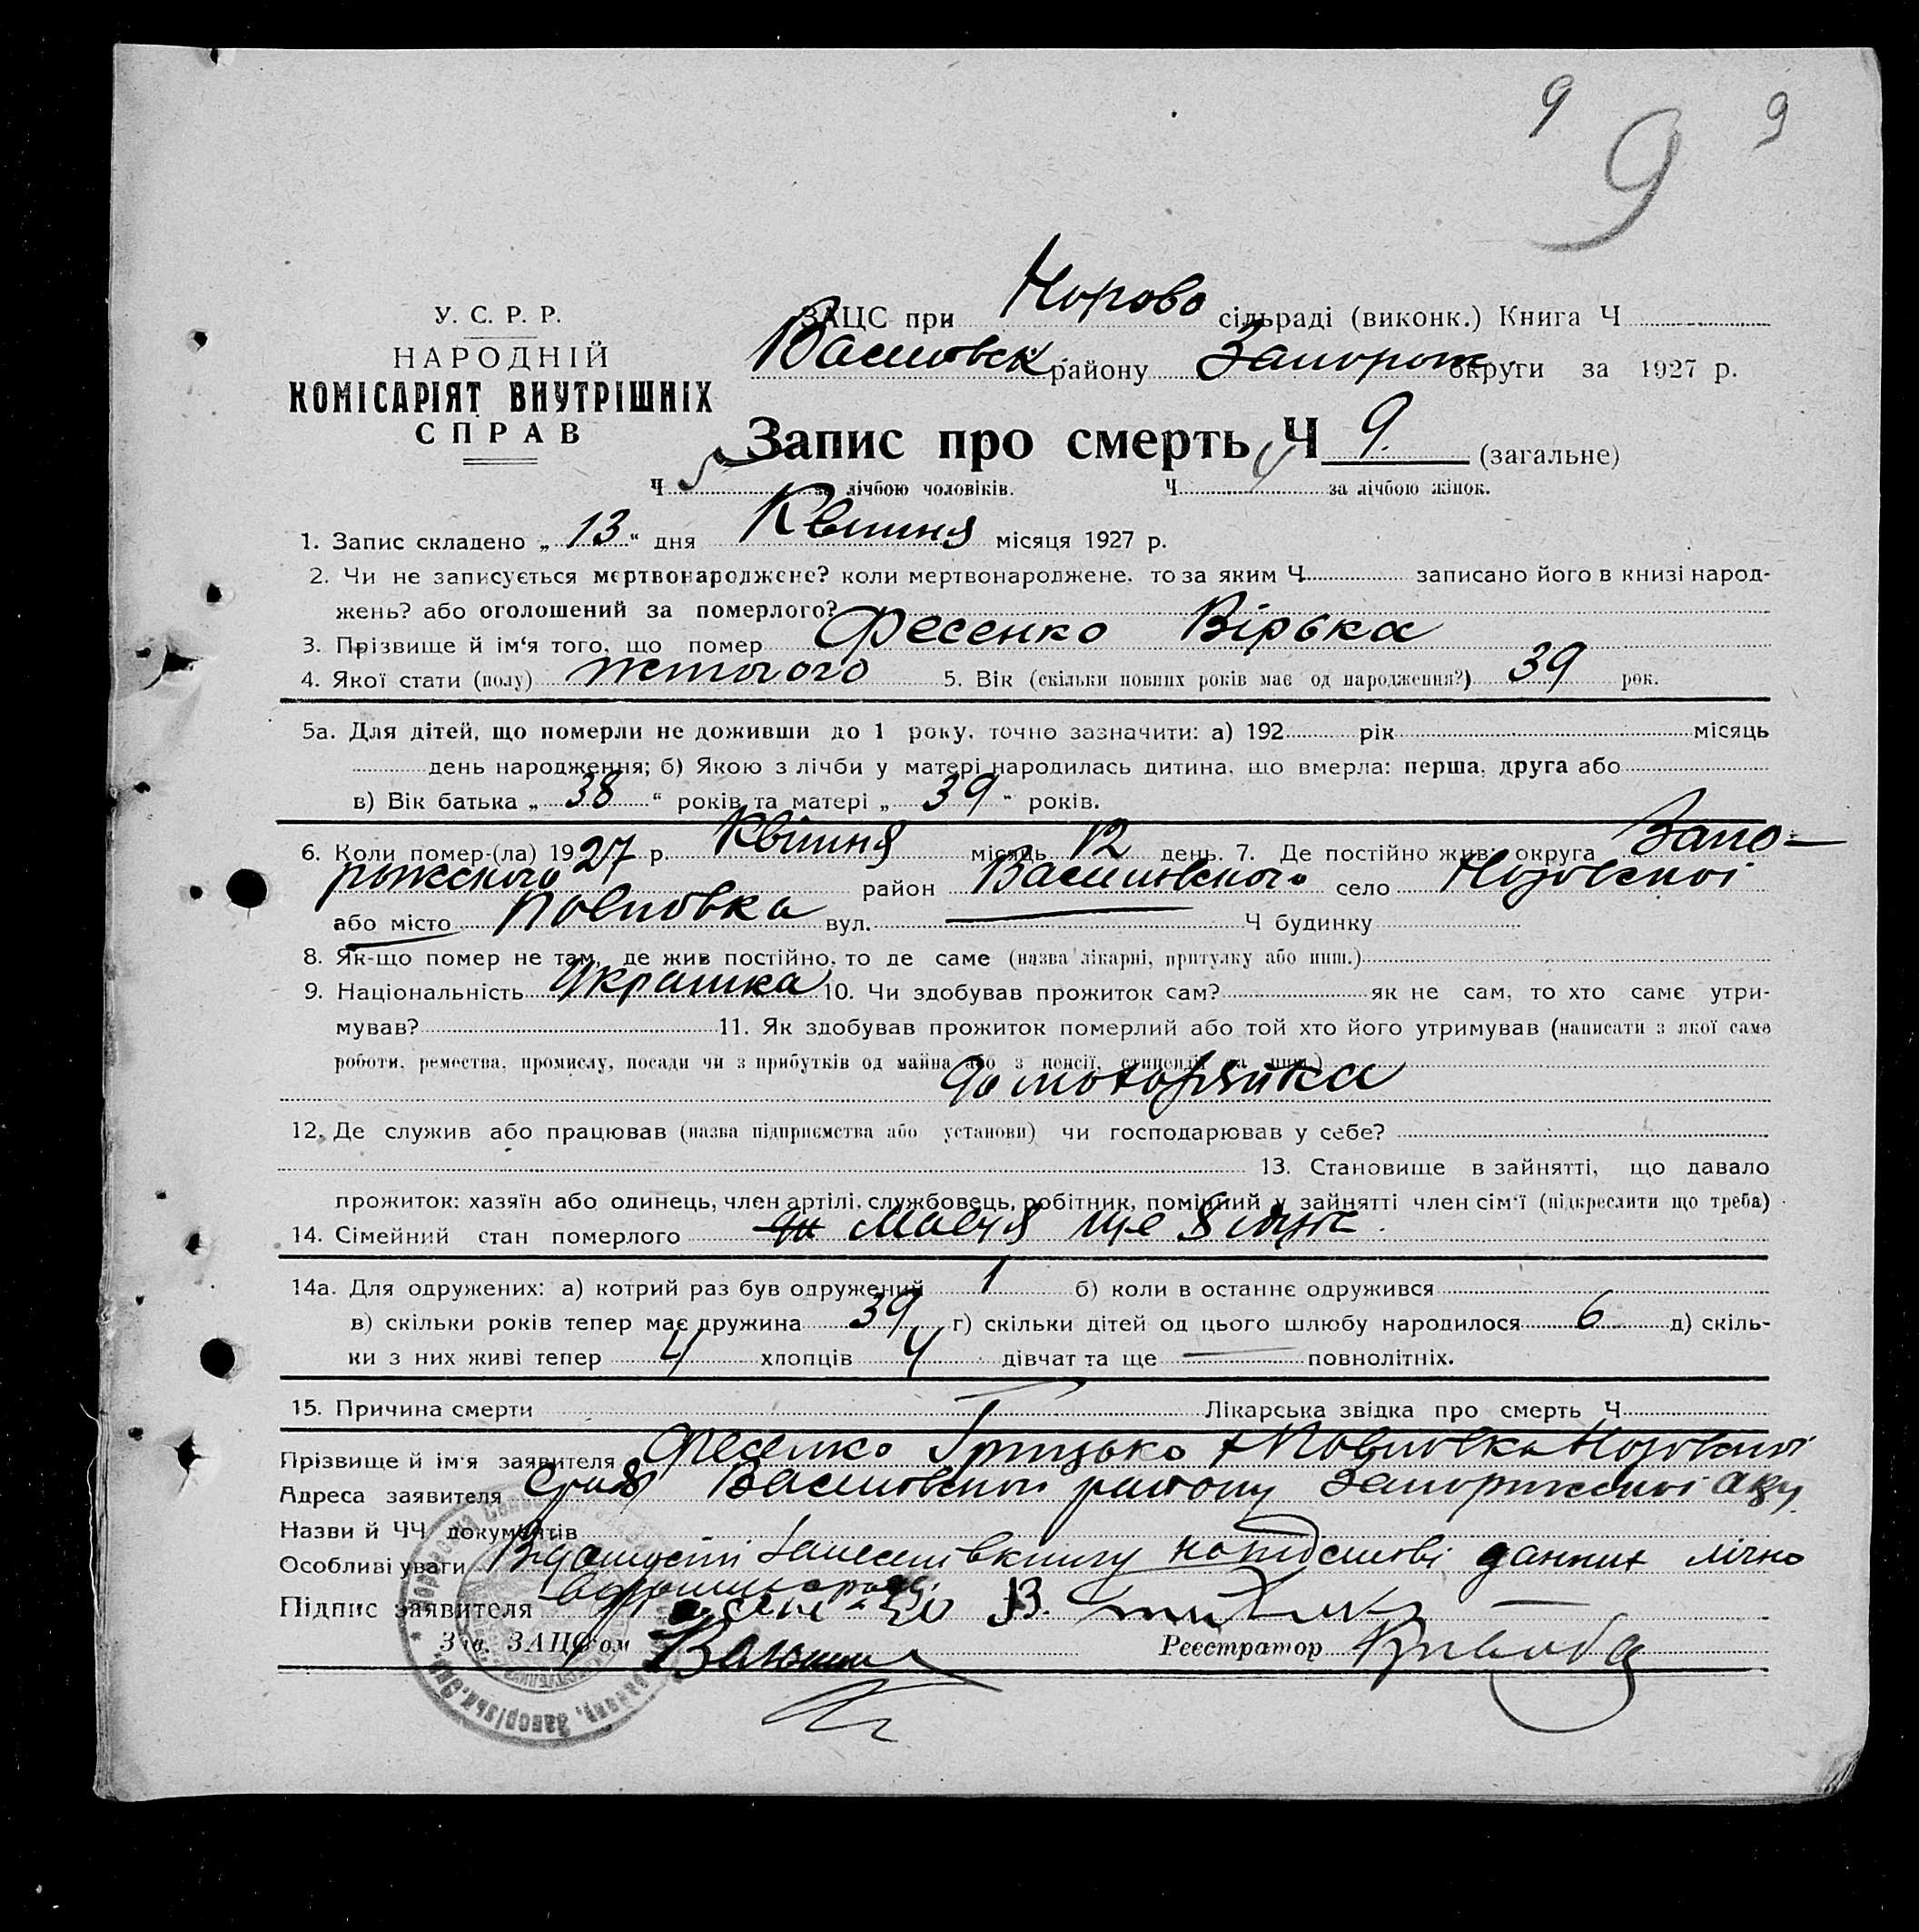 9 9 9
У. С. Р. Р.
НАРОДНІЙ
КОМІСАРІЯТ ВНУТРІШНІХ
СПРАВ
ЗАЦС при сільраді (виконк.) Книга Ч
Василівськ району Запорож округи за 1927 р.
Запис про смерть Ч 9. (загальне)
Ч 5 за лічбою чоловіків. Ч 4 за лічбою жінок.
1. Запис складено „13“ дня Квітня місяця 1927 р.
2. Чи не записується мертвонароджене? коли мертвонароджене, то за яким Ч записано його в книзі народ-
жень? або оголошений за померлого?
3. Прізвище й ім'я того, що помер Фесенко Вірька
4. Якої стати (полу) жіночого 5. Вік (скільки повних років має од народження?) 39 рок.
5а. Для дітей, що померли не доживши до 1 року, точно зазначити: а) 192 рік місяць
день народження; б) Якою з лічби у матері народилась дитина, що вмерла: перша, друга або
в) Вік батька „38“ років та матері „39“ років.
6. Коли помер-(ла) 1927 р. Квітня місяць 12 день. 7. Де постійно жив: округа Запо-
ріжського район Василівського село
або місто Павлівка вул. Ч будинку
8. Як-що помер не там, де жив постійно, то де саме (назва лікарні, притулку або инш.)
9. Національність Украінка 10. Чи здобував прожиток сам? як не сам, то хто саме утри-
мував? 11. Як здобував прожиток померлий або той хто його утримував (написати з якої саме
роботи, ремества, промислу, посади чи з прибутків од майна або з пенсії, стипендії та инш.)
Домохозяйка
12. Де служив або працював (назва підприємства або установи) чи господарював у себе?
13. Становище в зайнятті, що давало
прожиток: хазяїн або одинець, член артілі, службовець, робітник, помічний у зайнятті член сім'ї (підкреслити що треба)
14. Сімейний стан померлого
14а. Для одружених: а) котрий раз був одружений 1 б) коли в останнє одружився
в) скільки років тепер має дружина 39 г) скільки дітей од цього шлюбу народилося 6 д) скіль-
ки з них живі тепер 4 хлопців 4 дівчат та ще — повнолітніх.
15. Причина смерти Лікарська звідка про смерть Ч
Прізвище й ім'я заявителя Фесенко Грицько Павлівка
Адреса заявителя Василівської району Запоріжської окр.
Назви й ЧЧ документів
Особливі уваги данних лічно
Підпис заявителя
Зав. ЗАЦС'ом Реєстратор